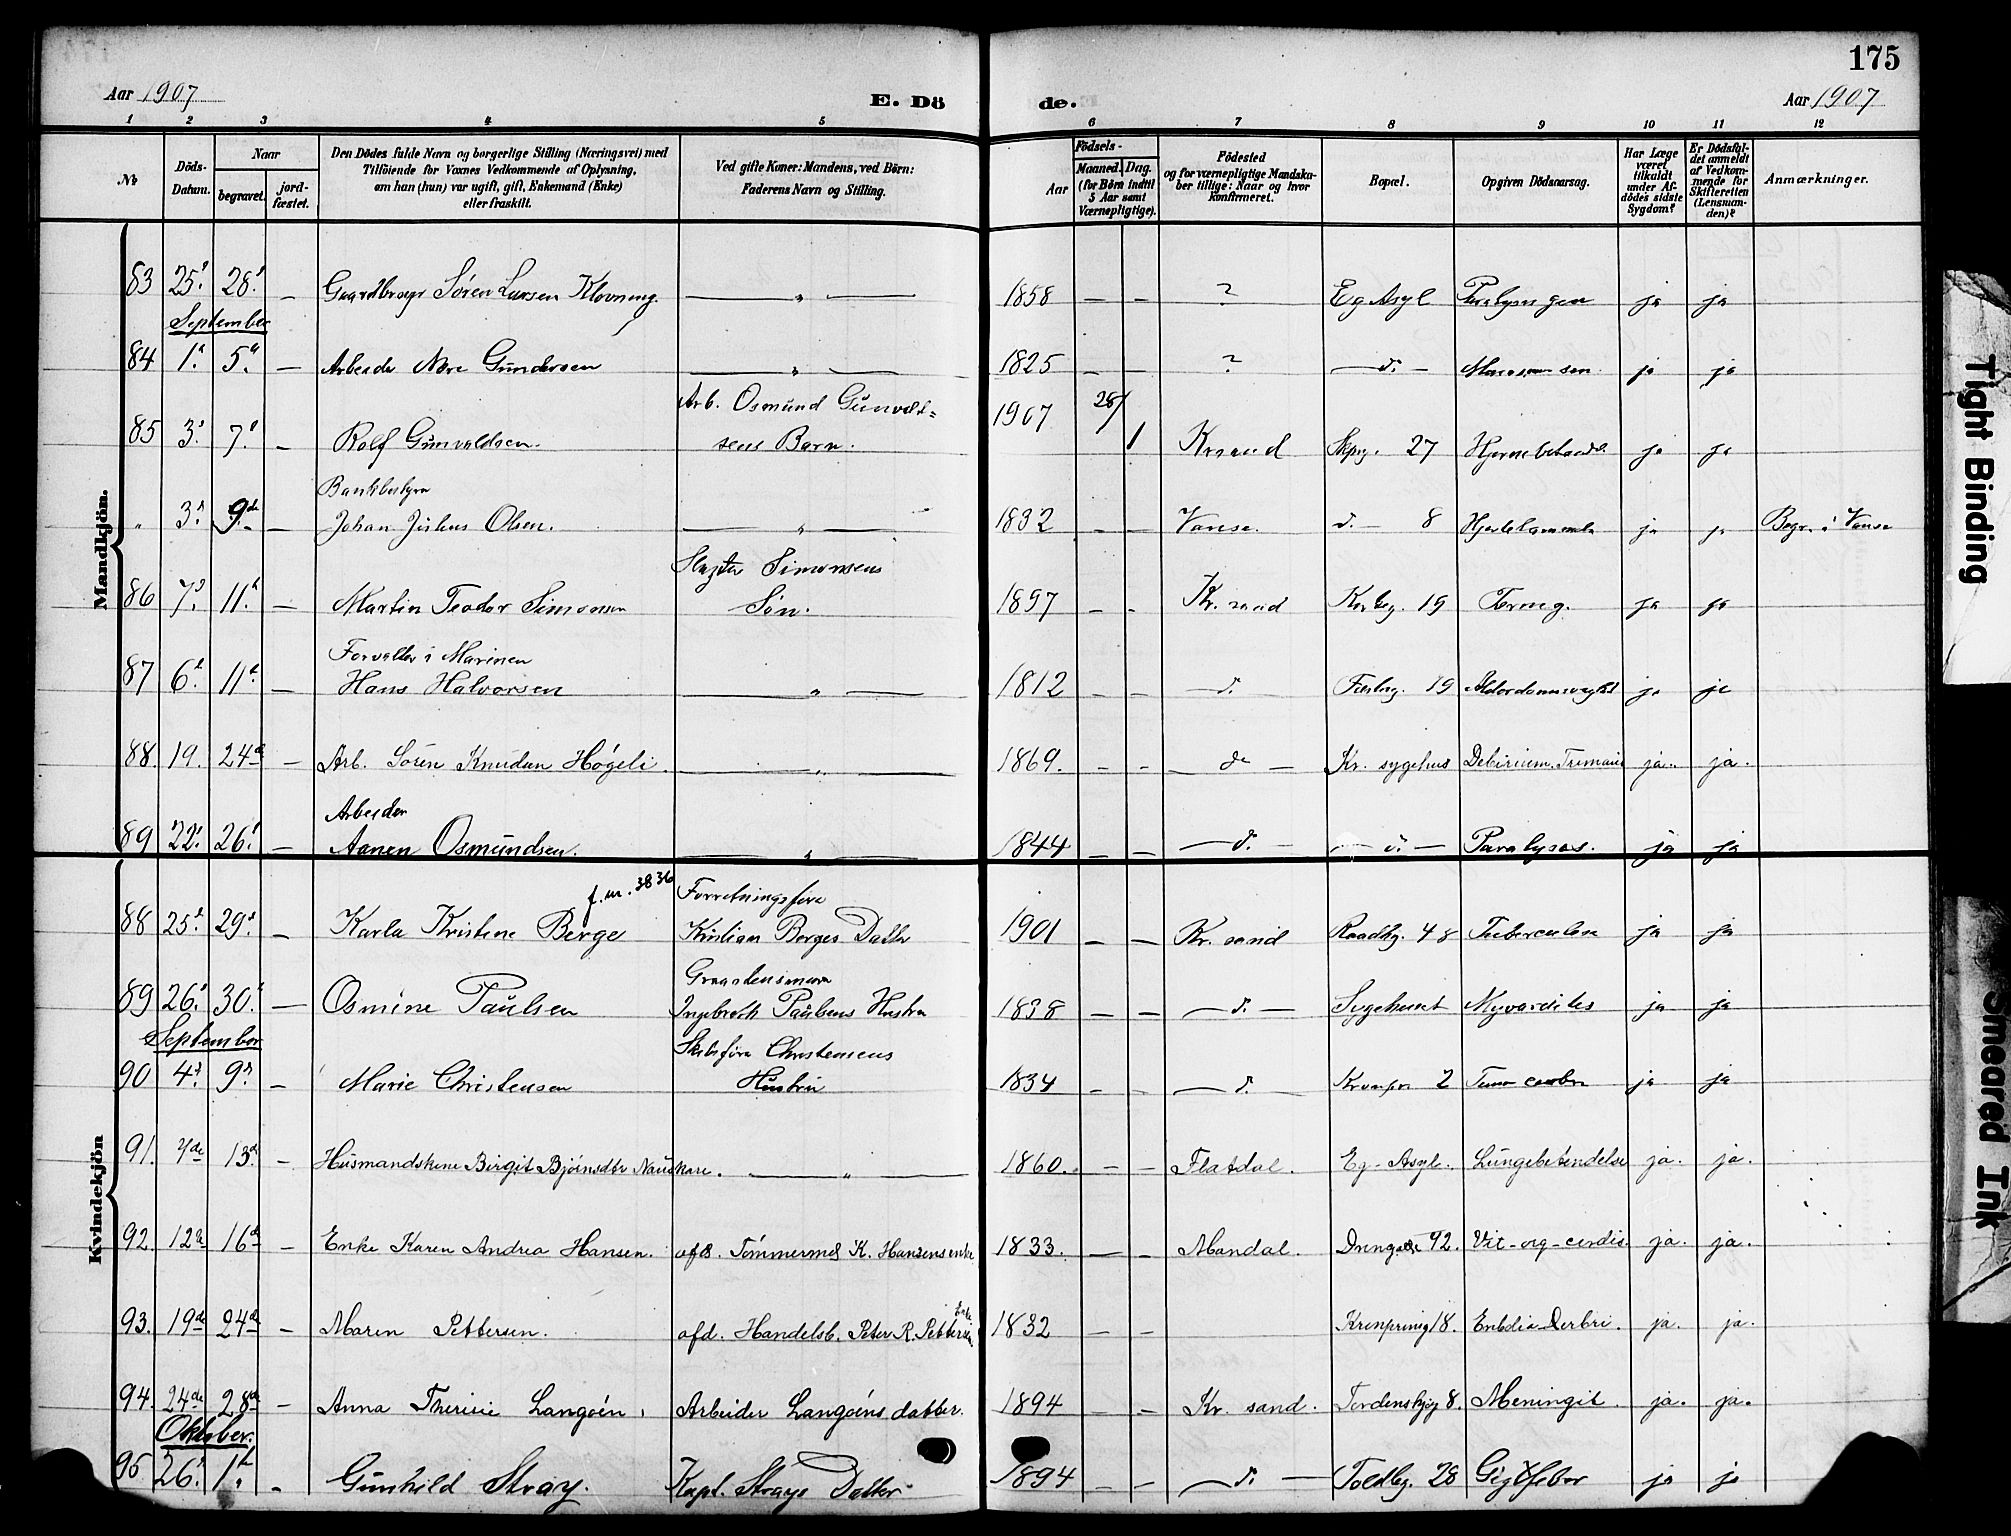 175
Aar 1907
E. Dö
de.
Aar 1907
1 2 3 4 5 6 7 8 9 10 11 12
№
Döds-Datum.
Naar
begravet.
jord-fæstet.
Den Dödes fulde Navn og borgerlige Stilling (Næringsvei) med
Tilföiende for Voxnes Vedkommende af Oplysning,
om han (hun) var ugift, gift, Enkemand (Enke)
eller fraskilt.
Ved gifte Koner: Mandens, ved Börn:
Faderens Navn og Stilling.
Födsels-
Aar
Maaned. Dag.
(for Börn indtil
5 Aar samt
Værnepligtige).
Födested
og for værnepligtige Mandska-
ber tillige: Naar og hvor
konfirmeret.
Bopæl.
Opgiven Dödsaarsag.
Har Læge
været
tilkaldt
under Af-
dödes sidste
Sygdom?
Er Dödsfal-
det anmeldt
af Vedkom-
mende for
Skifteretten
(Lensman-
den)?
Anmærkninger.
Mandkjön.
83 25. 28. — Gaardbruger Sören Larsen Klovning. — " — 1858 — — ? Eg Asyl Paralysis gen ja ja
September
84 1. 5. — Arbeider Gundersen — " — 1825 — — ? — d. — ja ja
Arb. Osmund Gunvald=
85 3. 7. — Rolf Gunvaldsen. sens Barn. 1907 28/1 Krsand Skpg. 27 ja ja
" 3. 9de — Johan Julius Olsen. — " — 1832 — — Vanse. d. — 8 Hjertelammelse ja ja Begr. i Vanse
Simonsens
86 7. 11. — Martin Teodor Simonsen Sön. 1897 — — Kr. sand 19 ja ja
Forvalter i Marinen
87 6. 11. — Hans Halvorsen — " — 1812 — — — d. 19 Alderdomssvaghed ja ja
88. 19. 24de — Arb. Sören Knudsen Högeli. — " — 1869. — — — do — Kr. sygehus Delirium Tremens ja. ja.
Arbeider
89 22. 26. — Aanen Osmundsen. — " — 1844 — — — d. — — d. — Paralyses. ja ja
Kvindekjön
f. nr. 3836 Forretningsfører
88 25. 29. — Karla Kristine Berge Kristian Berges Datter 1901 — — Kr. sand Raadhg. 48 Tuberculose ja ja
89 26. 30. — Osmine Paulsen Paulsens Hustru 1838 — — — d. — Sygehuset ja ja
September
Skibsförer Christensens
90 4. 9. — Marie Christensen Hustru 1834 — — — d. 2 ja ja
91. 4de 13de — Husmandskone Birgit Björnsdtr — " — 1860. — — Flatdal. Eg-Asyl. Lungebetendelse ja. ja.
92. 12te 16de — Enke Karen Andrea Hansen. afd. Tömmermd K. Hansens enke 1833. — — Mandal. 92. Vit-org-cordis. ja. ja.
93. 19de 24de — Maren Pettersen. afd. Handelsb. Peter R. Pettersen Enke 1832 — — 18. ja. ja.
94. 24de 28de — Anna Therisie Langöen. Arbeider Langöens datter. 1894 — — Kr. sand. Tordenskjg 8. Meningit. ja. ja.
Oktober.
95 26. 1. — Gunhild Stray. Kapt. Strays Datter 1894 — — — d. — Toldbg. 28 Gigtfeber ja ja
Tight Binding
Smeared Ink